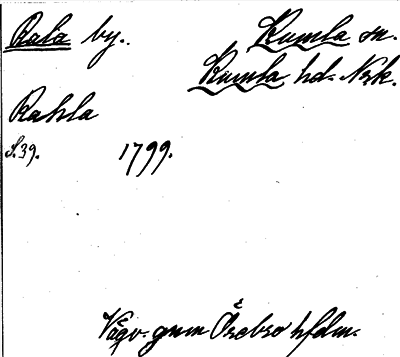 Rala by. Kumla sn.
Kumla hd. Nrk.
Rahla
S.39. 1799.
Vägv. gnm Örebro hfdm.